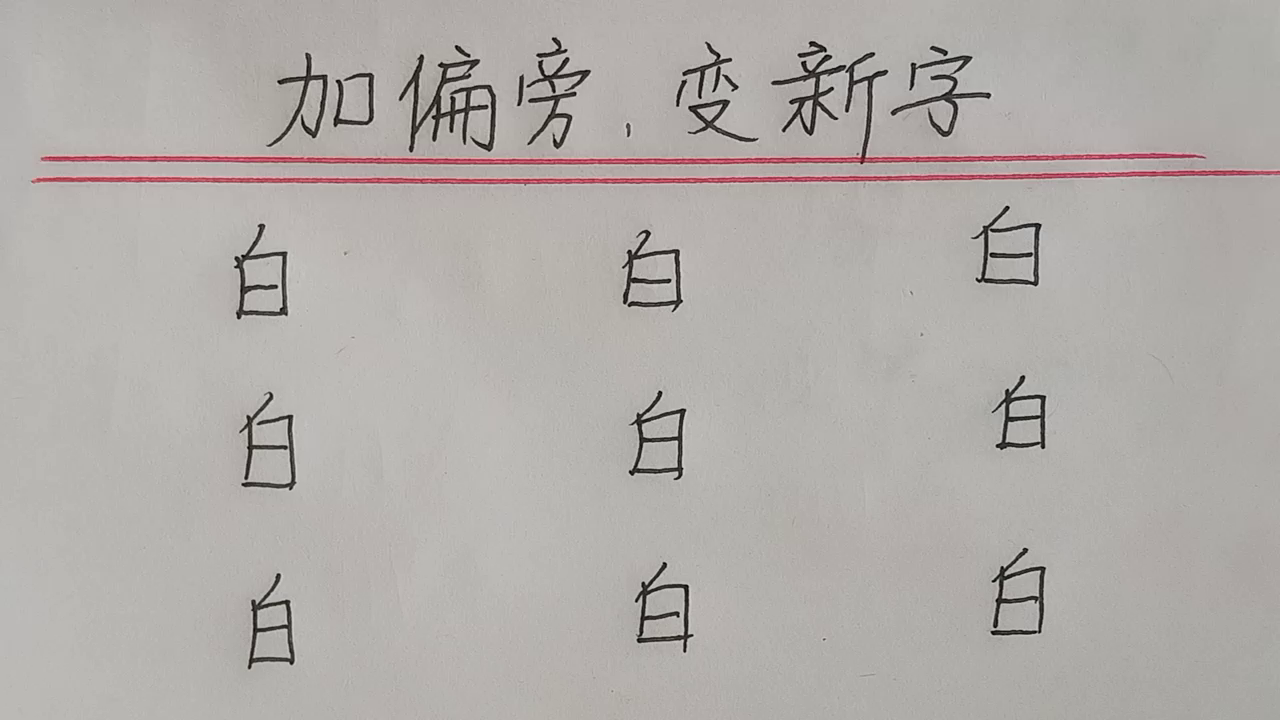 加偏旁，变新字
白 白 白
白 白 白
白 白 白